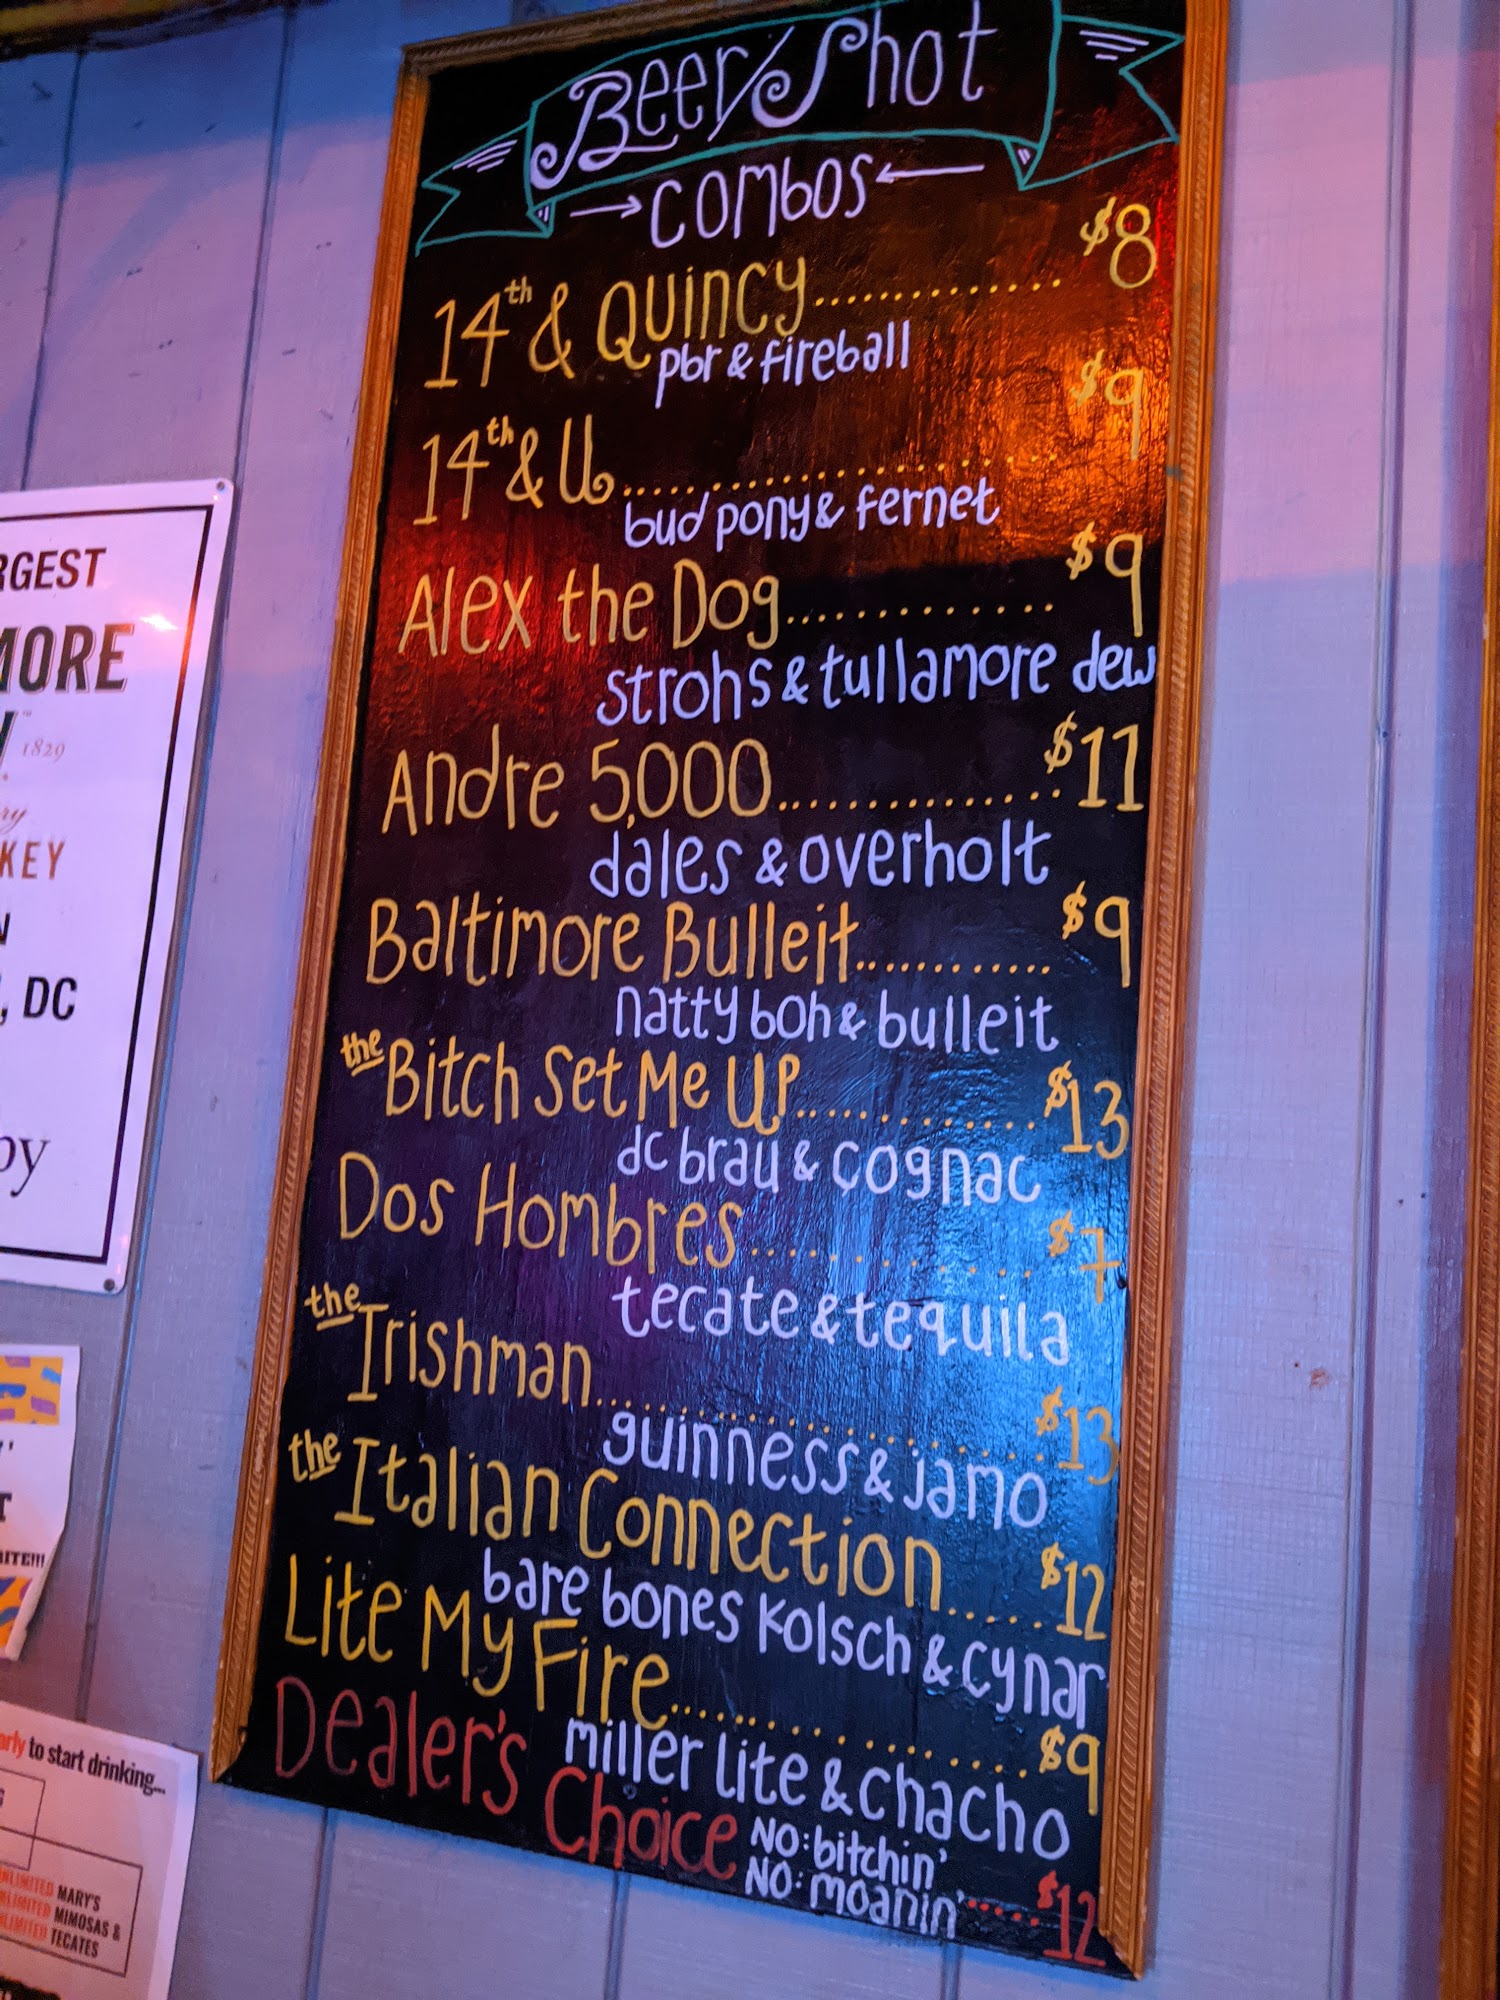 Beer/Shot
combos
14th & Quincy............. $8
pbr & fireball
14th & U..................... $9
bud pony & fernet
Alex the Dog............ $9
strohs & tullamore dew
Andre 5,000............... $11
dales & overholt
Baltimore Bulleit............ $9
natty boh & bulleit
the Bitch Set Me Up............. $13
dc brau & cognac
Dos Hombres........... $7
tecate & tequila
the Irishman.................. $13
guinness & jamo
the Italian Connection...... $12
bare bones kolsch & cynar
Lite My Fire............... $9
miller lite & chacho
Dealer's Choice
NO: bitchin'
NO: moanin'..... $12
RGEST
MORE
1829
KEY
, DC
by
arly to start drinking...
UNLIMITED MARY'S
UNLIMITED MIMOSAS &
UNLIMITED TECATES